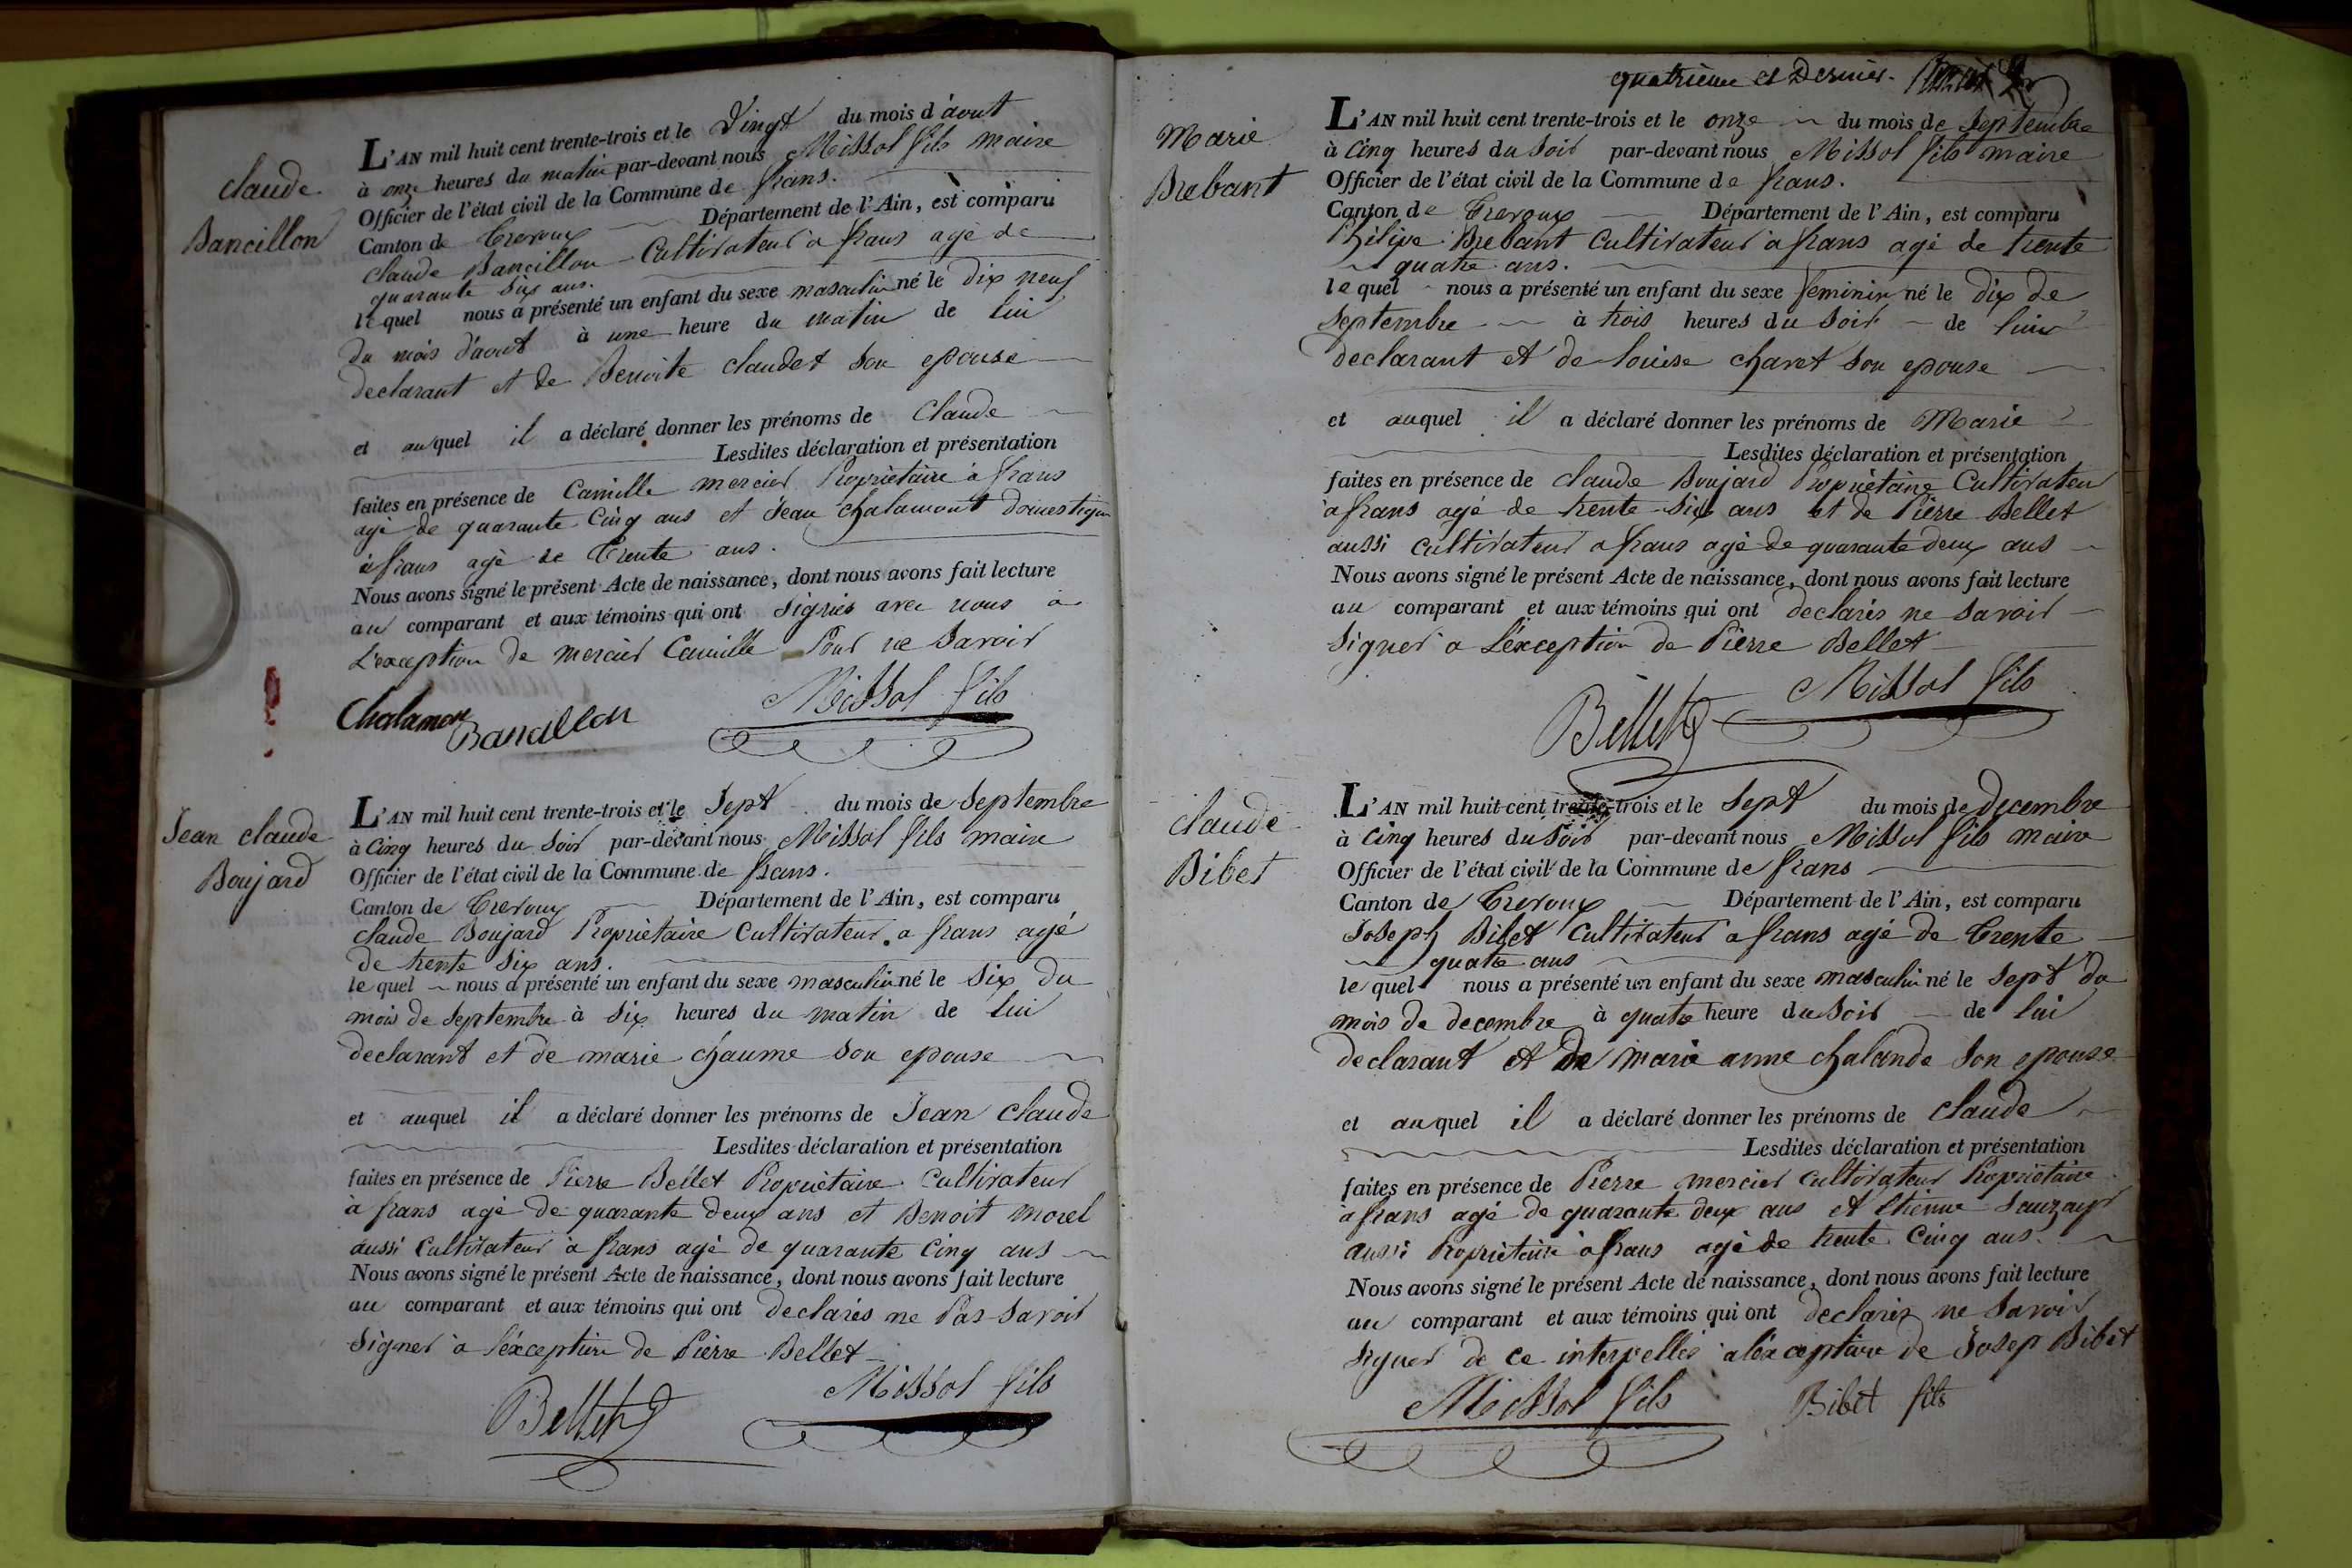 claude
Bancillon
L'AN mil huit cent trente-trois et le Vingt du mois d'aout
à onze heures du matin par-devant nous Missol fils maire
Officier de l'état civil de la Commune de frans.
Canton de Trevoux Département de l'Ain, est comparu
claude Bancillon Cultivateur a frans agé de
quarante six ans.
le quel nous a présenté un enfant du sexe masculin né le dix neuf
du mois d'aout à une heure du matin de lui
declarant et de Benoite claudet son epouse
et auquel il a déclaré donner les prénoms de Claude
Lesdites déclaration et présentation
faites en présence de Camille mercier Propriètaire à frans
agé de quarante Cinq ans et Jean Chalamont domestique
à frans agé de Trente ans.
Nous avons signé le présent Acte de naissance, dont nous avons fait lecture
au comparant et aux témoins qui ont signiés avec nous a
L'exception de mercier Camille Pour ne Savoir
Chalamon Bancillon Missol fils
Jean claude
Boujard
L'AN mil huit cent trente-trois et le Sept du mois de Septembre
à Cinq heures du Soir par-devant nous Missol fils maire
Officier de l'état civil de la Commune de frans.
Canton de Trevoux Département de l'Ain, est comparu
claude Boujard Propriètaire Cultivateur a frans agé
de trente Six ans.
le quel nous a présenté un enfant du sexe masculin né le Six du
mois de Septembre à Six heures du matin de lui
declarant et de marie chaume son epouse
et auquel il a déclaré donner les prénoms de Jean Claude
Lesdites déclaration et présentation
faites en présence de Pierre Bellet Propriètaire Cultivateur
à frans agé de quarante deux ans et Benoit morel
aussi Cultivateur à frans agé de quarante Cinq ans
Nous avons signé le présent Acte de naissance, dont nous avons fait lecture
au comparant et aux témoins qui ont declarés ne Pas Savoir
Signer à l'éxception de Pierre Bellet
Bellet Missol fils
quatrième et Dernier.
Marie
Brebant
L'AN mil huit cent trente-trois et le onze du mois de Septembre
à Cinq heures du Soir par-devant nous Missol fils maire
Officier de l'état civil de la Commune de frans.
Canton de Trevoux Département de l'Ain, est comparu
Philipe Brebant Cultivateur à frans agé de trente
quatre ans.
le quel nous a présenté un enfant du sexe feminin né le dix de
Septembre à trois heures du Soir de lui
declarant et de louise charet son epouse
et auquel il a déclaré donner les prénoms de Marie
Lesdites déclaration et présentation
faites en présence de claude Boujard Propriètaire Cultivateur
à frans agé de trente Six ans et de Pierre Bellet
aussi Cultivateur a frans agé de quarante deux ans
Nous avons signé le présent Acte de naissance, dont nous avons fait lecture
au comparant et aux témoins qui ont declarés ne Savoir
Signer a l'éxception de Pierre Bellet
Bellet Missol fils
claude
Bibet
L'AN mil huit cent trente-trois et le Sept du mois de decembre
à Cinq heures du Soir par-devant nous Missol fils maire
Officier de l'état civil de la Commune de frans
Canton de Trevoux Département de l'Ain, est comparu
Joseph Bibet Cultivateur a frans agé de Trente
quatre ans
le quel nous a présenté un enfant du sexe masculin né le sept du
mois de decembre à quatre heure du Soir de lui
declarant et de marie anne chalande Son epouse
et auquel il a déclaré donner les prénoms de claude
Lesdites déclaration et présentation
faites en présence de Pierre mercier Cultivateur Propriètaire
à frans agé de quarante deux ans et Etienne
aussi Propriètaire à frans agé de trente Cinq ans.
Nous avons signé le présent Acte de naissance, dont nous avons fait lecture
au comparant et aux témoins qui ont declarés ne Savoir
Signer de ce interpellés a l'éxception de Josep Bibet
Missol fils Bibet fils